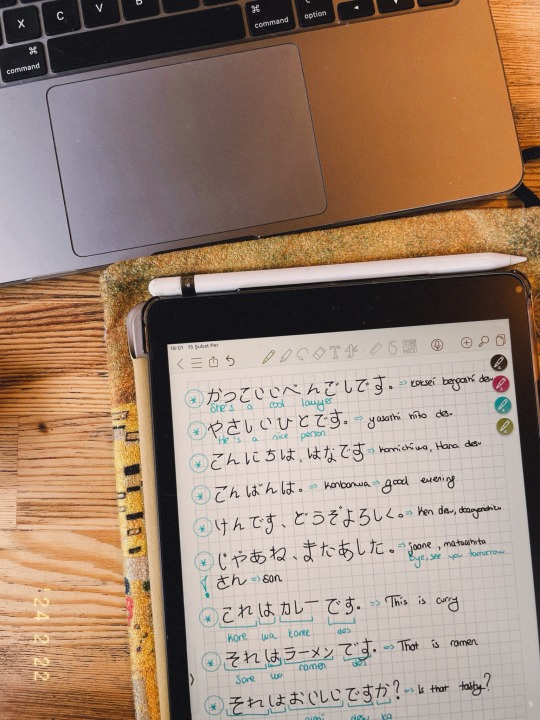 X C V B
⌘ command
⌘ command
option
18:01 15 Şubat Per
T
かっこいいべんごしです。⇒ kakoii bengoshi des
She's a cool lawyer
やさしいひとです。⇒ yasashi hito des
He's a nice person
こんにちは、はなです ⇒ konnichiwa, Hana des
こんばんは。⇒ konbanwa ⇒ good evening
けんです、どうぞよろしく。⇒ Ken des,
じゃあね、またあした。⇒ jaane, mataashita
Bye, see you tomorrow
! さん ⇒ san
これはカレーです。⇒ This is curry
kore wa karee des
それはラーメンです。⇒ That is ramen
sore wa ramen des
それはおいしいですか? ⇒ Is that tasty?
ka
'24 2 22